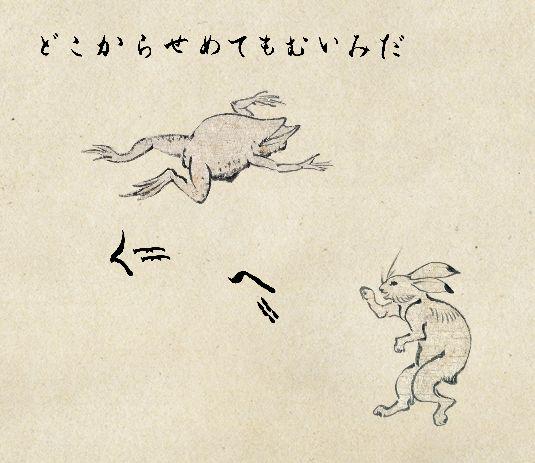 どこからせめてもむいみだ